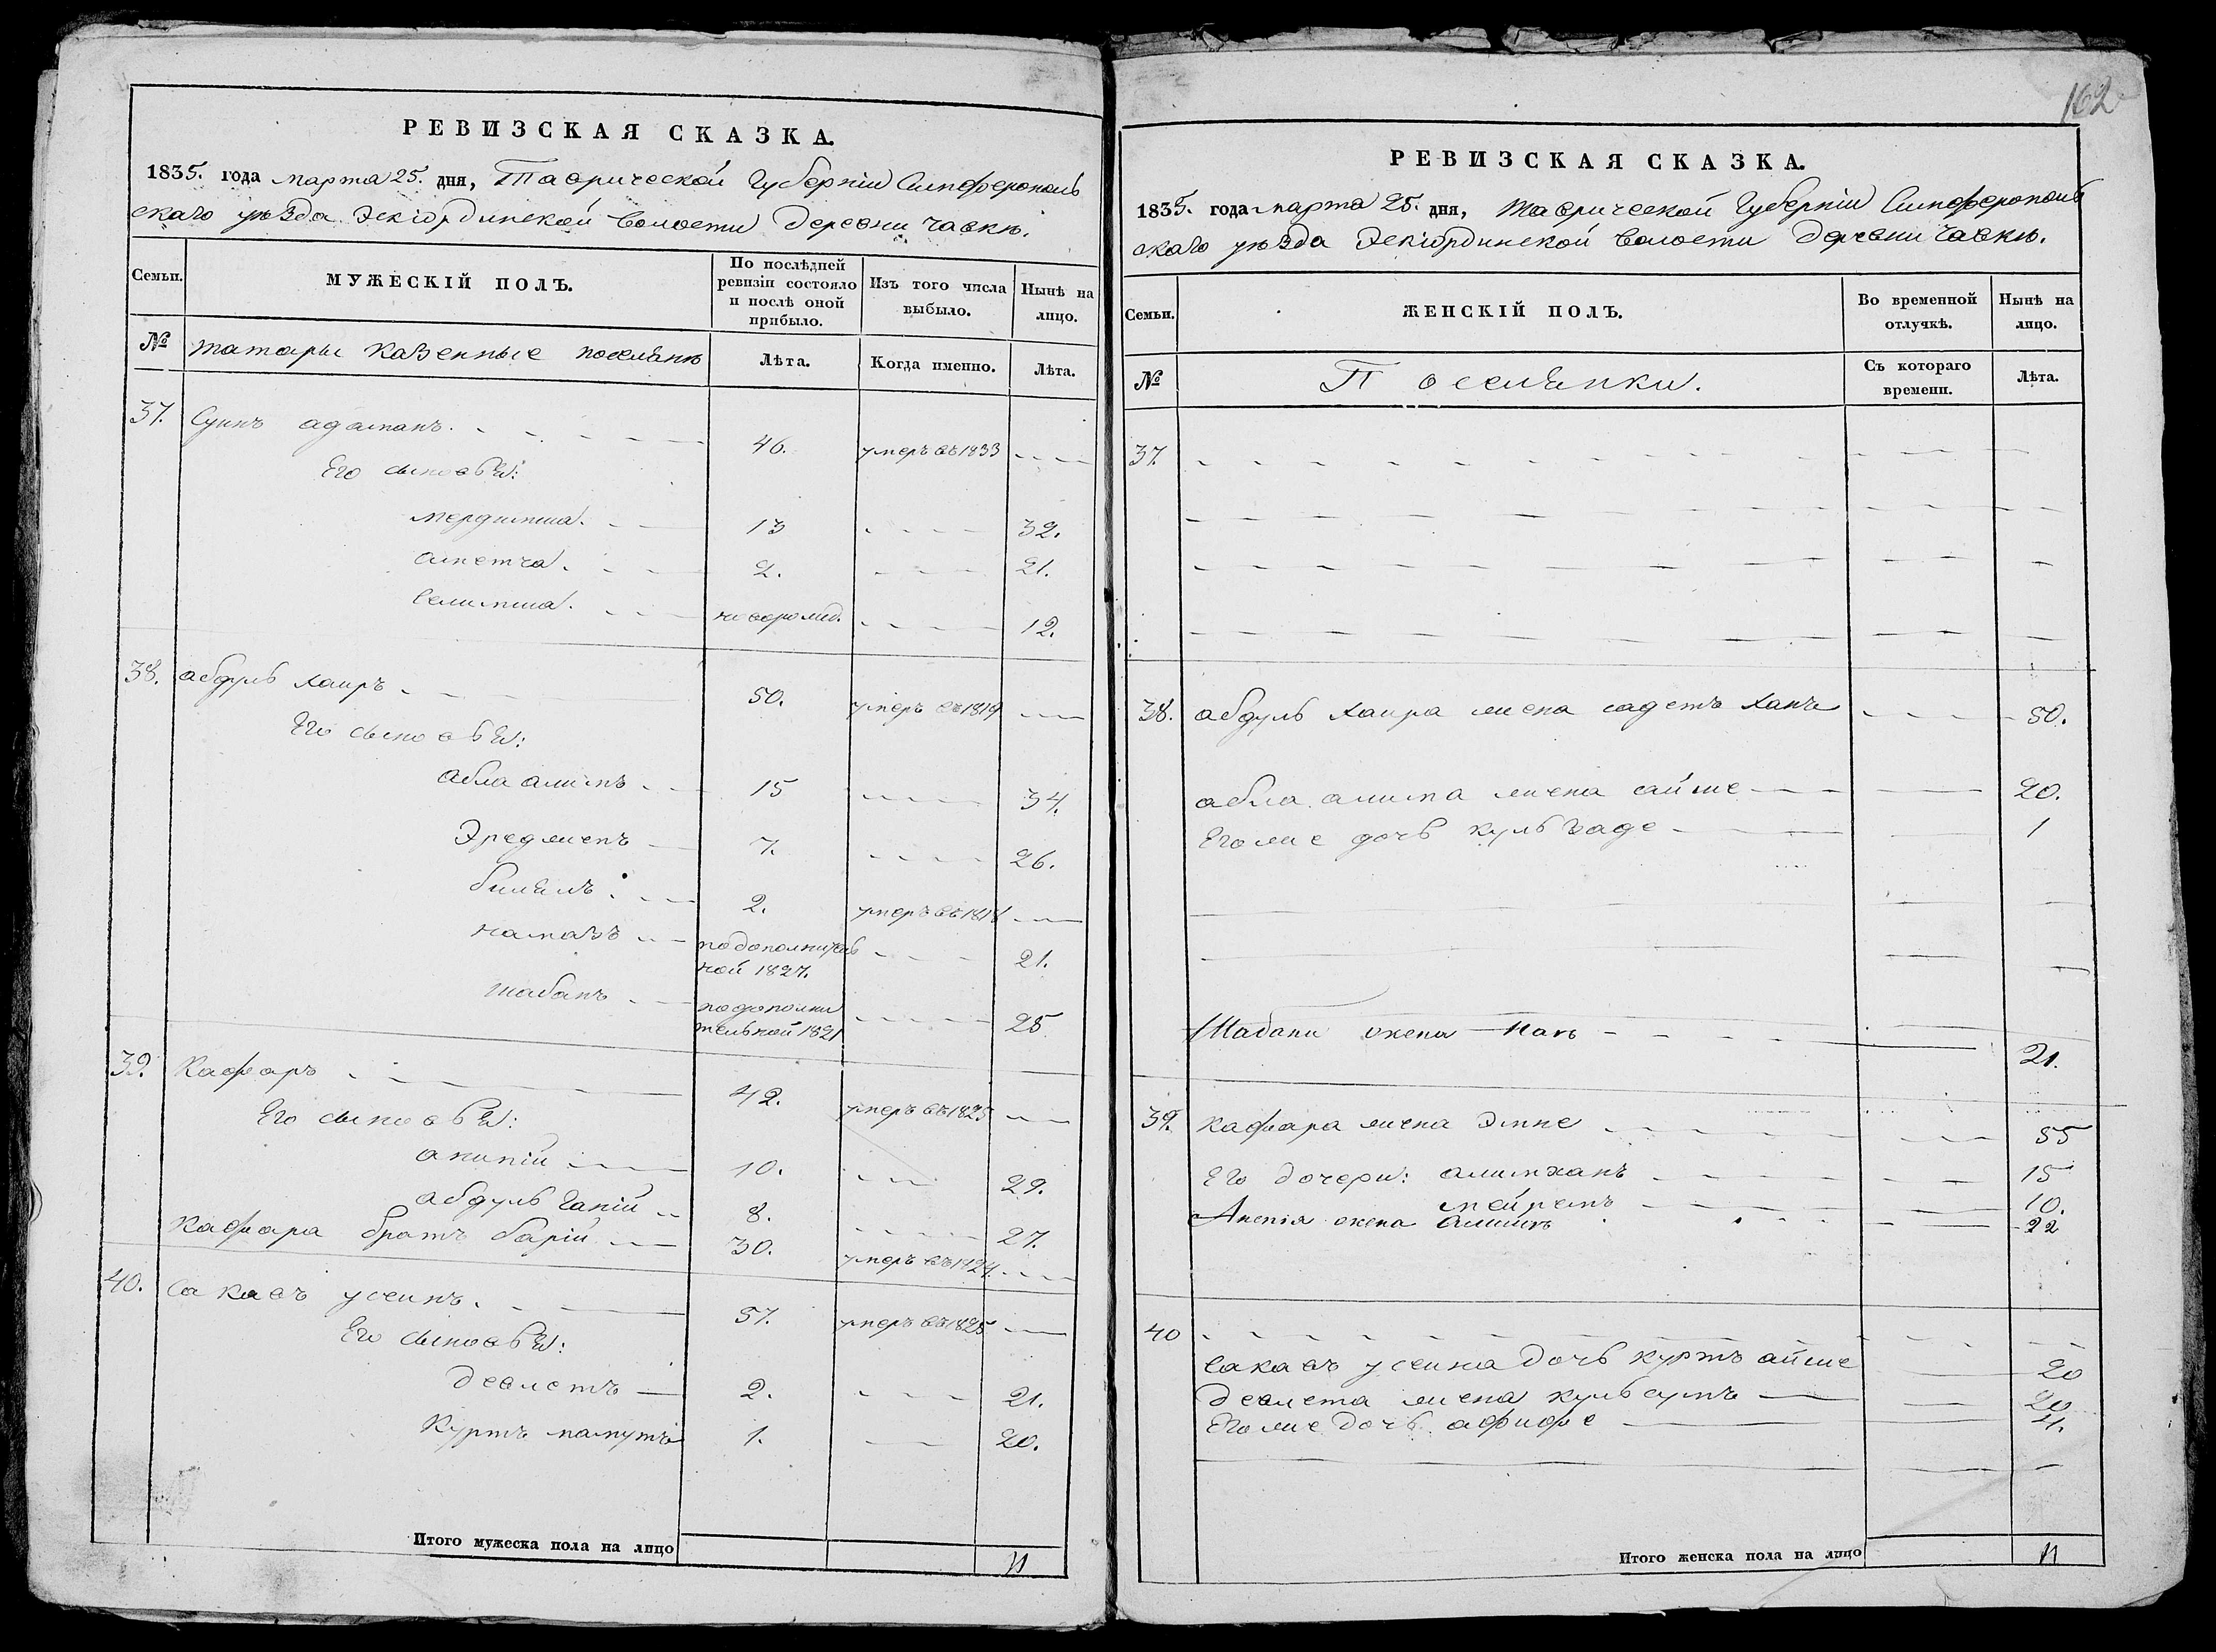 РЕВИЗСКАЯ СКАЗКА.
1835. года марта 25. дня, Таврической Губерніи Симферополь
скаго уѣзда Эскіордынской волости деревни Чавке.
Семьи.
МУЖЕСКІЙ ПОЛЪ.
По послѣдней ревизіи состояло и послѣ оной прибыло.
Изъ того числа выбыло.
Нынѣ на лицо.
№ татары казенные поселяне Лѣта. Когда именно. Лѣта.
37. адаманъ. 46. умеръ въ 1833
Его сыновья:
13 32.
аметча. 2. 21.
Селимша. новорожд. 12.
38. абдулъ хаиръ 50. умеръ въ 1819
Его сыновья:
абла алимъ 15 34.
Эреджепъ 7. 26.
билялъ 2. умеръ въ 1818
намазъ по дополнитель
ной 1827. 21.
шабанъ по дополни
тельной 1821 25
39. Кафаръ 42. умеръ въ 1825
Его сыновья:
10. 29.
абдулъ ганій 8. 27.
Кафара братъ барій 30. умеръ въ 1824.
40. Сакавъ усеинъ. 57. умеръ въ 1825
Его сыновья:
девлетъ 2. 21.
Куртъ мамутъ 1. 20.
Итого мужеска пола на лицо 11
162
РЕВИЗСКАЯ СКАЗКА.
1835. года марта 25. дня, Таврической Губерніи Симферополь
скаго уѣзда Эскіордынской волости деревни Чавке.
Семьи.
ЖЕНСКІЙ ПОЛЪ.
Во временной отлучкѣ.
Нынѣ на лицо.
№ Поселянки. Съ котораго времени. Лѣта.
37.
38. абдулъ хаира жена садетъ ханъ 50.
абла алима жена сайме 20.
Его же дочь кульзаде 1
Шабана жена 21.
39. Кафара жена Эмине 55
Его дочери: алимханъ 15
мейремъ 10.
жена 22
40
Сакавъ усеина дочь куртъ айше 20
девлета жена кульсумъ 20
Его же дочь афифе 4.
Итого женска пола на лицо 11